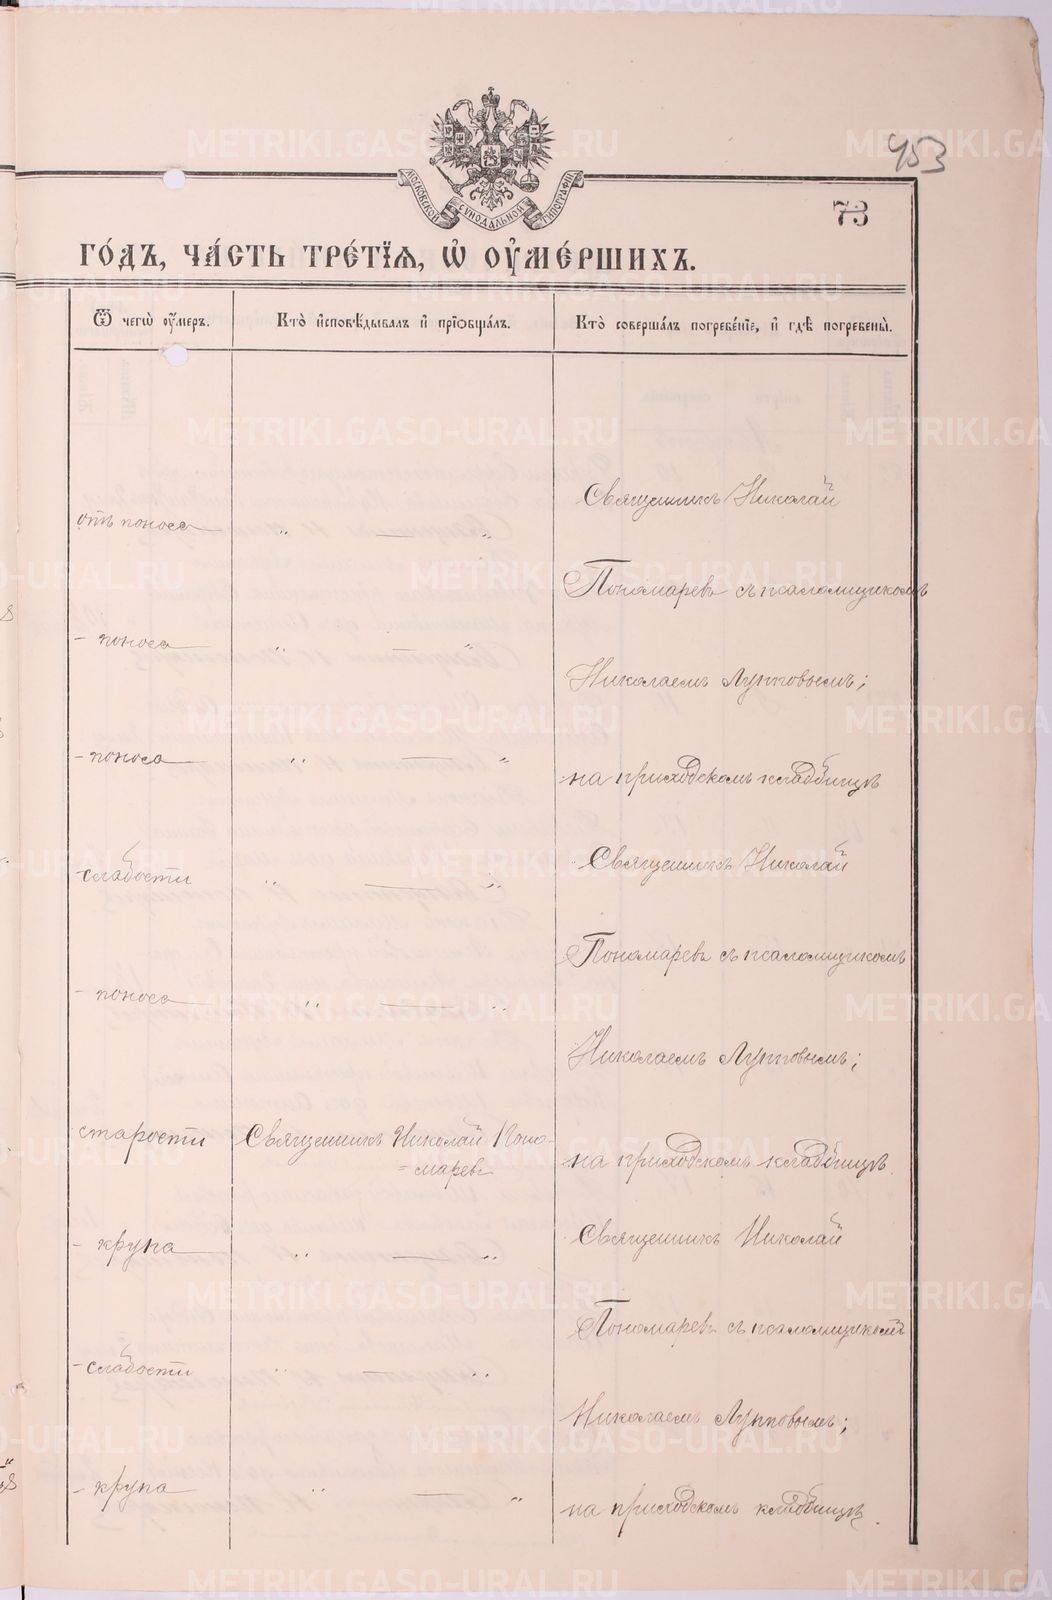 953
МОСКОВСКОЙ СѴНОДАЛЬНОЙ ТИПОГРАФІИ
73
ГО́ДЪ, ЧА́СТЬ ТРЕ́ТІѦ, Ѡ ОУ҆МЕ́РШИХЪ.
Ѿ чегѡ̀ оу҆́меръ.
Кто̀ и҆сповѣ́дывалъ и҆ пріѻбща́лъ.
Кто̀ соверша́лъ погребе́нїе, и҆ гдѣ̀ погребены̀.
Священникъ Николай
отъ поноса " — "
Пономаревъ съ псаломщикомъ
- поноса " — "
Николаемъ Лупповымъ;
- поноса " — "
на приходскомъ кладбищѣ
Священникъ Николай
- слабости " — "
Пономаревъ съ псаломщикомъ
- поноса " — "
Николаемъ Лупповымъ;
старости Священникъ Николай Поно-
=маревъ
на приходскомъ кладбищѣ.
Священникъ Николай
- крупа " — "
Пономаревъ съ псаломщикомъ
- слабости " — "
Николаемъ Лупповымъ;
- крупа " — "
на приходскомъ кладбищѣ.
METRIKI.GASO-URAL.RU